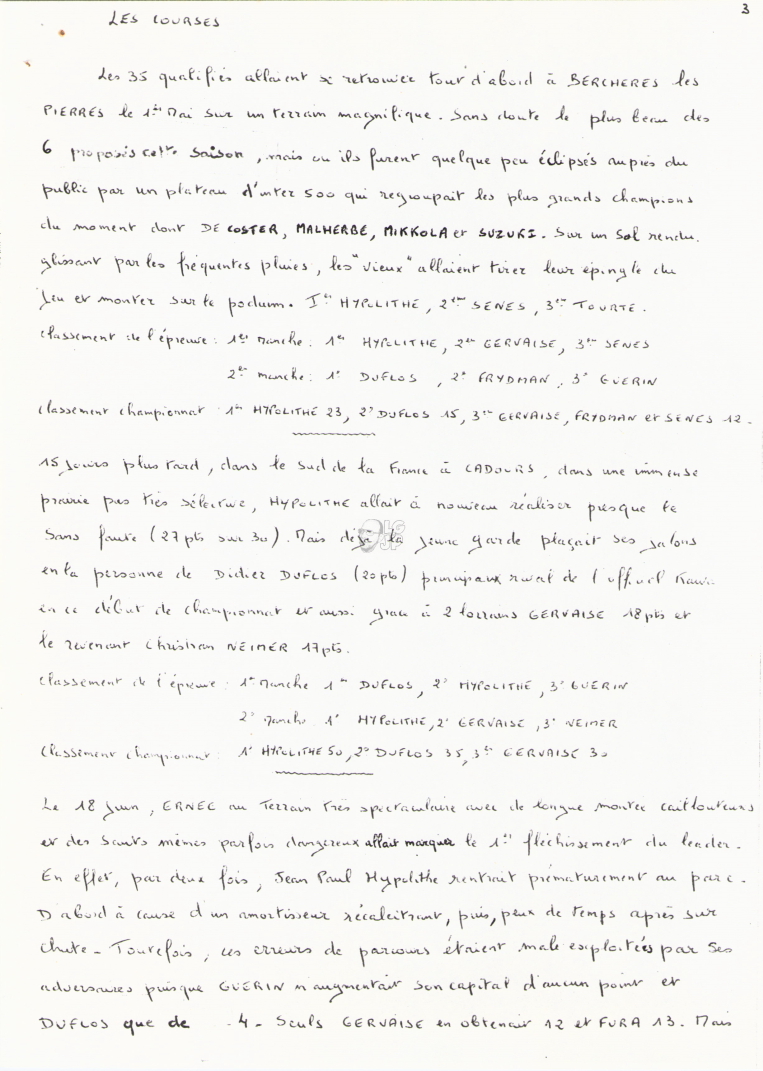 3
LES COURSES
Les 35 qualifiés allaient se retrouver tout d'abord à BERCHERES les
PIERRES le 1er Mai sur un terrain magnifique. Sans doute le plus beau des
6 proposés cette saison, mais ou ils furent quelque peu éclipsés auprès du
public par un plateau d'inter 500 qui regroupait les plus grands champions
du moment dont DE COSTER, MALHERBE, MIKKOLA et SUZUKI. Sur un sol rendu
glissant par les fréquentes pluies, les "vieux" allaient tirer leur épingle du
jeu et monter sur le podium. 1er HYPOLITHE, 2ème SENES, 3ème TOURTE.
Classement de l'épreuve : 1ère Manche : 1er HYPOLITHE, 2ème GERVAISE, 3ème SENES
2ème manche : 1° DUFLOS, 2° FRYDMAN, 3° GUERIN
Classement championnat 1er HYPOLITHE 23, 2° DUFLOS 15, 3ème GERVAISE, FRYDMAN et SENES 12.
15 jours plus tard, dans le sud de la France à CADOURS, dans une immense
prairie pas très sélective, HYPOLITHE allait à nouveau réaliser presque le
sans faute (27 pts sur 30). Mais déjà la jeune garde plaçait ses jalons
en la personne de Didier DUFLOS (20 pts) principaux rival de l'officiel Kawa
en ce début de championnat et aussi grace à 2 lorrains GERVAISE 18 pts et
le revenant Christian NEIMER 17 pts.
Classement de l'épreuve : 1° Manche 1er DUFLOS, 2° HYPOLITHE, 3° GUERIN
2° Manche 1° HYPOLITHE, 2° GERVAISE, 3° NEIMER
Classement championnat : 1° HYPOLITHE 50, 2° DUFLOS 35, 3ème GERVAISE 30
Le 18 Juin, ERNEE au Terrain très spectaculaire avec de longue montée caillouteuse
et des sauts mêmes parfois dangereux allait marquer le 1er fléchissement du leader.
En effet, par deux fois, Jean Paul Hypolithe rentrait prématurement au parc.
D'abord à cause d'un amortisseur récalcitrant, puis, peux de temps après sur
chute - Toutefois, ces erreurs de parcours étaient male exploitées par ses
adversaires puisque GUERIN n'augmentait son capital d'aucun point et
DUFLOS que de 4 - Seuls GERVAISE en obtenait 12 et FURA 13. Mais